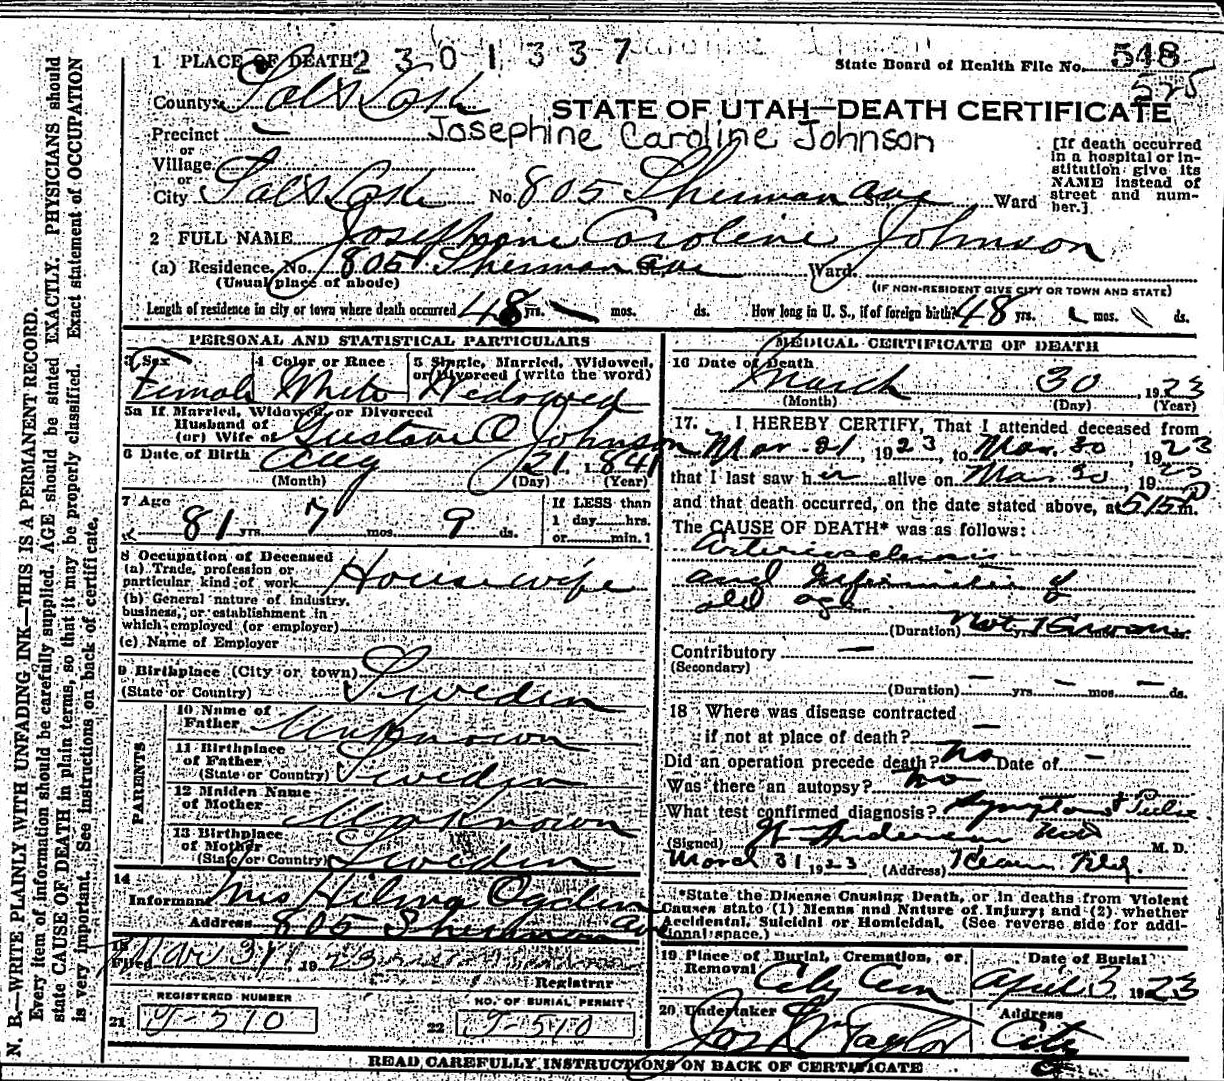 2301337
1 PLACE OF DEATH
State Board of Health File No. 548
525
County Salt Lake
STATE OF UTAH—DEATH CERTIFICATE
Precinct
Josephine Caroline Johnson
or
Village
or
City Salt Lake No. 805 Sherman Ave Ward
[If death occurred
in a hospital or in-
stitution give its
NAME instead of
street and num-
ber.]
2 FULL NAME Josephine Caroline Johnson
(a) Residence, No. 805 Sherman Ave Ward.
(Usual place of abode)
(IF NON-RESIDENT GIVE CITY OR TOWN AND STATE)
Length of residence in city or town where death occurred 48 yrs. — mos. ds. How long in U. S., if of foreign birth? 48 yrs. mos. ds.
PERSONAL AND STATISTICAL PARTICULARS
3 Sex
Female
4 Color or Race
White
5 Single, Married, Widowed,
or Divorced (write the word)
Widowed
5a If Married, Widowed, or Divorced
Husband of
(or) Wife of Gustave O Johnson
6 Date of Birth Aug 21, 1841
(Month) (Day) (Year)
7 Age
81 yrs. 7 mos. 9 ds.
If LESS than
1 day......hrs.
or......min.?
8 Occupation of Deceased
(a) Trade, profession or
particular kind of work Housewife
(b) General nature of industry,
business, or establishment in
which employed (or employer)
(c) Name of Employer
9 Birthplace (City or town)
(State or Country) Sweden
PARENTS
10 Name of
Father Unknown
11 Birthplace
of Father
(State or Country) Sweden
12 Maiden Name
of Mother Unknown
13 Birthplace
of Mother
(State or Country) Sweden
14
Informant Mrs Hilma Ogden
Address 805 Sherman Ave
15
Filed Mar 31, 1923
Registrar
REGISTERED NUMBER
21 J-510
NO. OF BURIAL PERMIT
22 J-510
MEDICAL CERTIFICATE OF DEATH
16 Date of Death
March 30, 1923
(Month) (Day) (Year)
17. I HEREBY CERTIFY, That I attended deceased from
Mar. 21, 1923, to Mar. 30, 1923
that I last saw her alive on Mar. 30, 19
and that death occurred, on the date stated above, at 515 P m.
The CAUSE OF DEATH* was as follows:
Arteriosclerosis
and Infirmities of
old age
(Duration) Not Known yrs. mos. ds.
Contributory —
(Secondary)
(Duration) — yrs. — mos. — ds.
18 Where was disease contracted
if not at place of death? —
Did an operation precede death? No Date of —
Was there an autopsy? No
What test confirmed diagnosis? Symptoms & Pulse
(Signed) Anderson M. D.
March 31 1923 (Address) Kearns Bldg.
*State the Disease Causing Death, or in deaths from Violent
Causes state (1) Means and Nature of Injury; and (2) whether
Accidental, Suicidal or Homicidal. (See reverse side for addi-
tional space.)
19 Place of Burial, Cremation, or
Removal City Cem
Date of Burial
April 3, 1923
20 Undertaker
Jos Wm Taylor
Address
City
READ CAREFULLY INSTRUCTIONS ON BACK OF CERTIFICATE
N. B.—WRITE PLAINLY WITH UNFADING INK—THIS IS A PERMANENT RECORD.
Every item of information should be carefully supplied. AGE should be stated EXACTLY. PHYSICIANS should
state CAUSE OF DEATH in plain terms, so that it may be properly classified. Exact statement of OCCUPATION
is very important. See instructions on back of certificate.